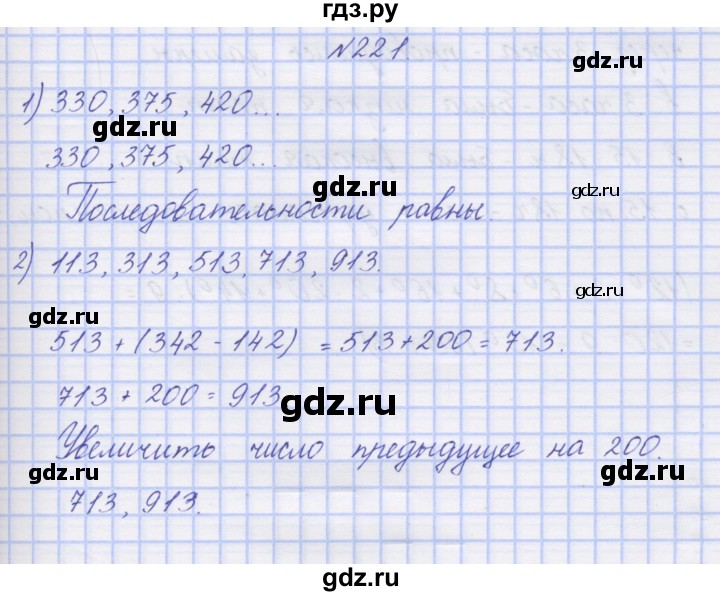 гдз.ру
№221.
gdz.ru
1) 330, 375, 420...
gdz.ru
gdz.ru
330, 375, 420...
gdz.ru
gdz.ru
Последовательности равны.
2) 113, 313, 513, 713, 913.
gdz.ru
gdz.ru
513 + (342 - 142) = 513 + 200 = 713.
713 + 200 = 913
gdz.ru
Увеличить число предыдущее на 200.
gdz.ru
gdz.ru
713, 913.
gdz.ru